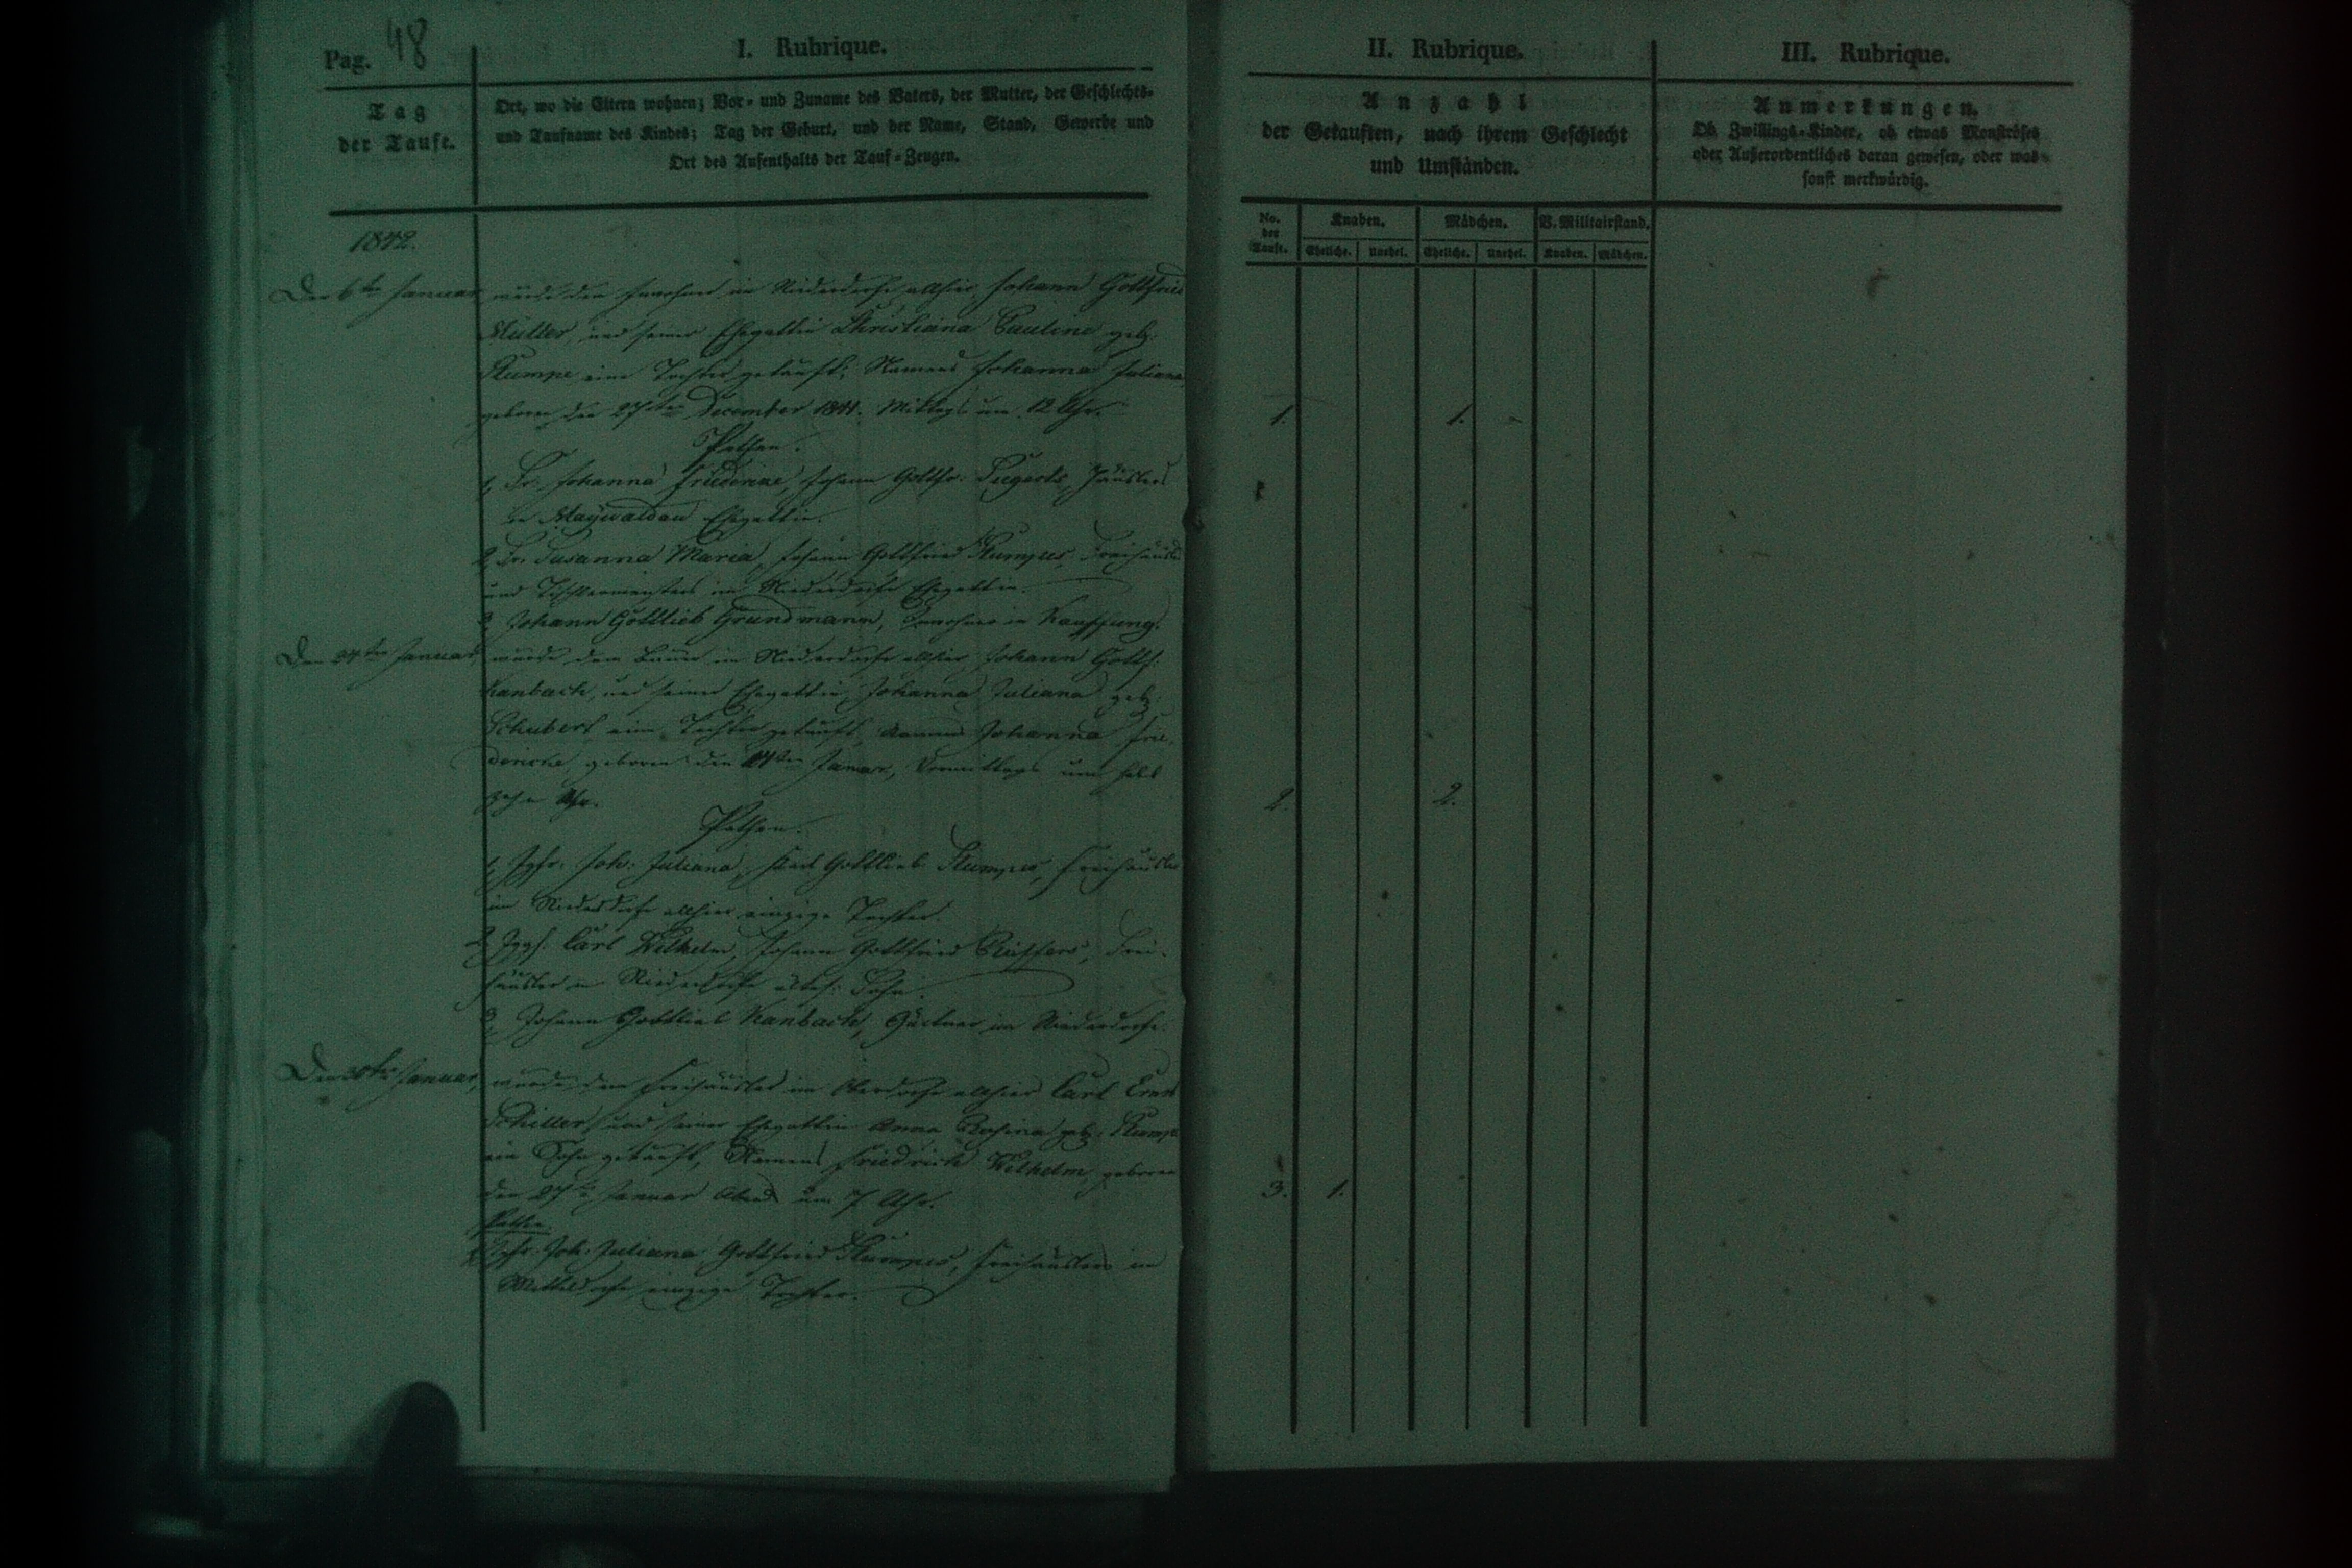 Pag. 48
I. Rubrique.
Tag
der Taufe.
Ort, wo die Eltern wohnen; Vor- und Zuname des Vaters, der Mutter, der Geschlechts-
und Taufname des Kindes; Tag der Geburt, und der Name, Stand, Gewerbe und
Ort des Aufenthalts der Tauf-Zeugen.
1842.
Den 6ten Januar wurde dem Inwohner im Niederdorfe allhier Johann Gottfried
Müller, und seiner Ehegattin Christiana Pauline geb.
Stumpe eine Tochter getauft, Namens Johanna Juliana
geboren den 27ten December 1841. Mittags um 12 Uhr.
Pathen.
1, Fr. Johanna Friederike, Johann Gottfr. Häuslers
in Maywaldau Ehegattin.
2, Fr. Susanna Maria, Johann Gottfried Stumpes, Freihäusl.
und Tischlermeisters im Niederdorfe Ehegattin.
3, Johann Gottlieb Grundmann, Inwohner in Kauffung.
Den Januar wurde dem im Niederdorfe allhier Johann Gottf.
Kanbach, und seiner Ehegattin Johanna Juliana geb.
Schubert eine Tochter getauft, Namens Johanna Frie-
dericke, geboren den Januar, Vormittags um halb
zehn Uhr.
Pathen.
1, Jgfr. Joh. Juliana, Karl Gottlieb Stumpes, Freihäusler
im Niederdorfe allhier einzige Tochter.
2, Jggs. Carl Wilhelm, Johann Gottfried Frei-
häusler in Niederdorfe Sohn.
3, Johann Gottlieb Kanbach, Gärtner im Niederdorfe.
Den 30ten Januar, wurde dem Freihäusler im Oberdorfe allhier Carl Ernst
Schiller und seiner Ehegattin Anna Rosina geb. Stumpe
ein Sohn getauft, Namens Friedrich Wilhelm, geboren
den 27ten Januar Abend um 7 Uhr.
Pathen.
1, Jgfr. Joh. Juliana Gottfried Stumpes, Freihäuslers im
Mitteldorfe einzige Tochter.
II. Rubrique.
Anzahl
der Getauften, nach ihrem Geschlecht
und Umständen.
No. der Taufe.
Knaben.
Mädchen.
V. Militairstand.
Eheliche. Unehel. Eheliche. Unehel. Knaben. Mädchen.
1. 1.
2. 2.
3. 1.
III. Rubrique.
Anmerkungen.
Ob Zwillings-Kinder, ob etwas Monströses
oder Außerordentliches daran gewesen, oder was
sonst merkwürdig.